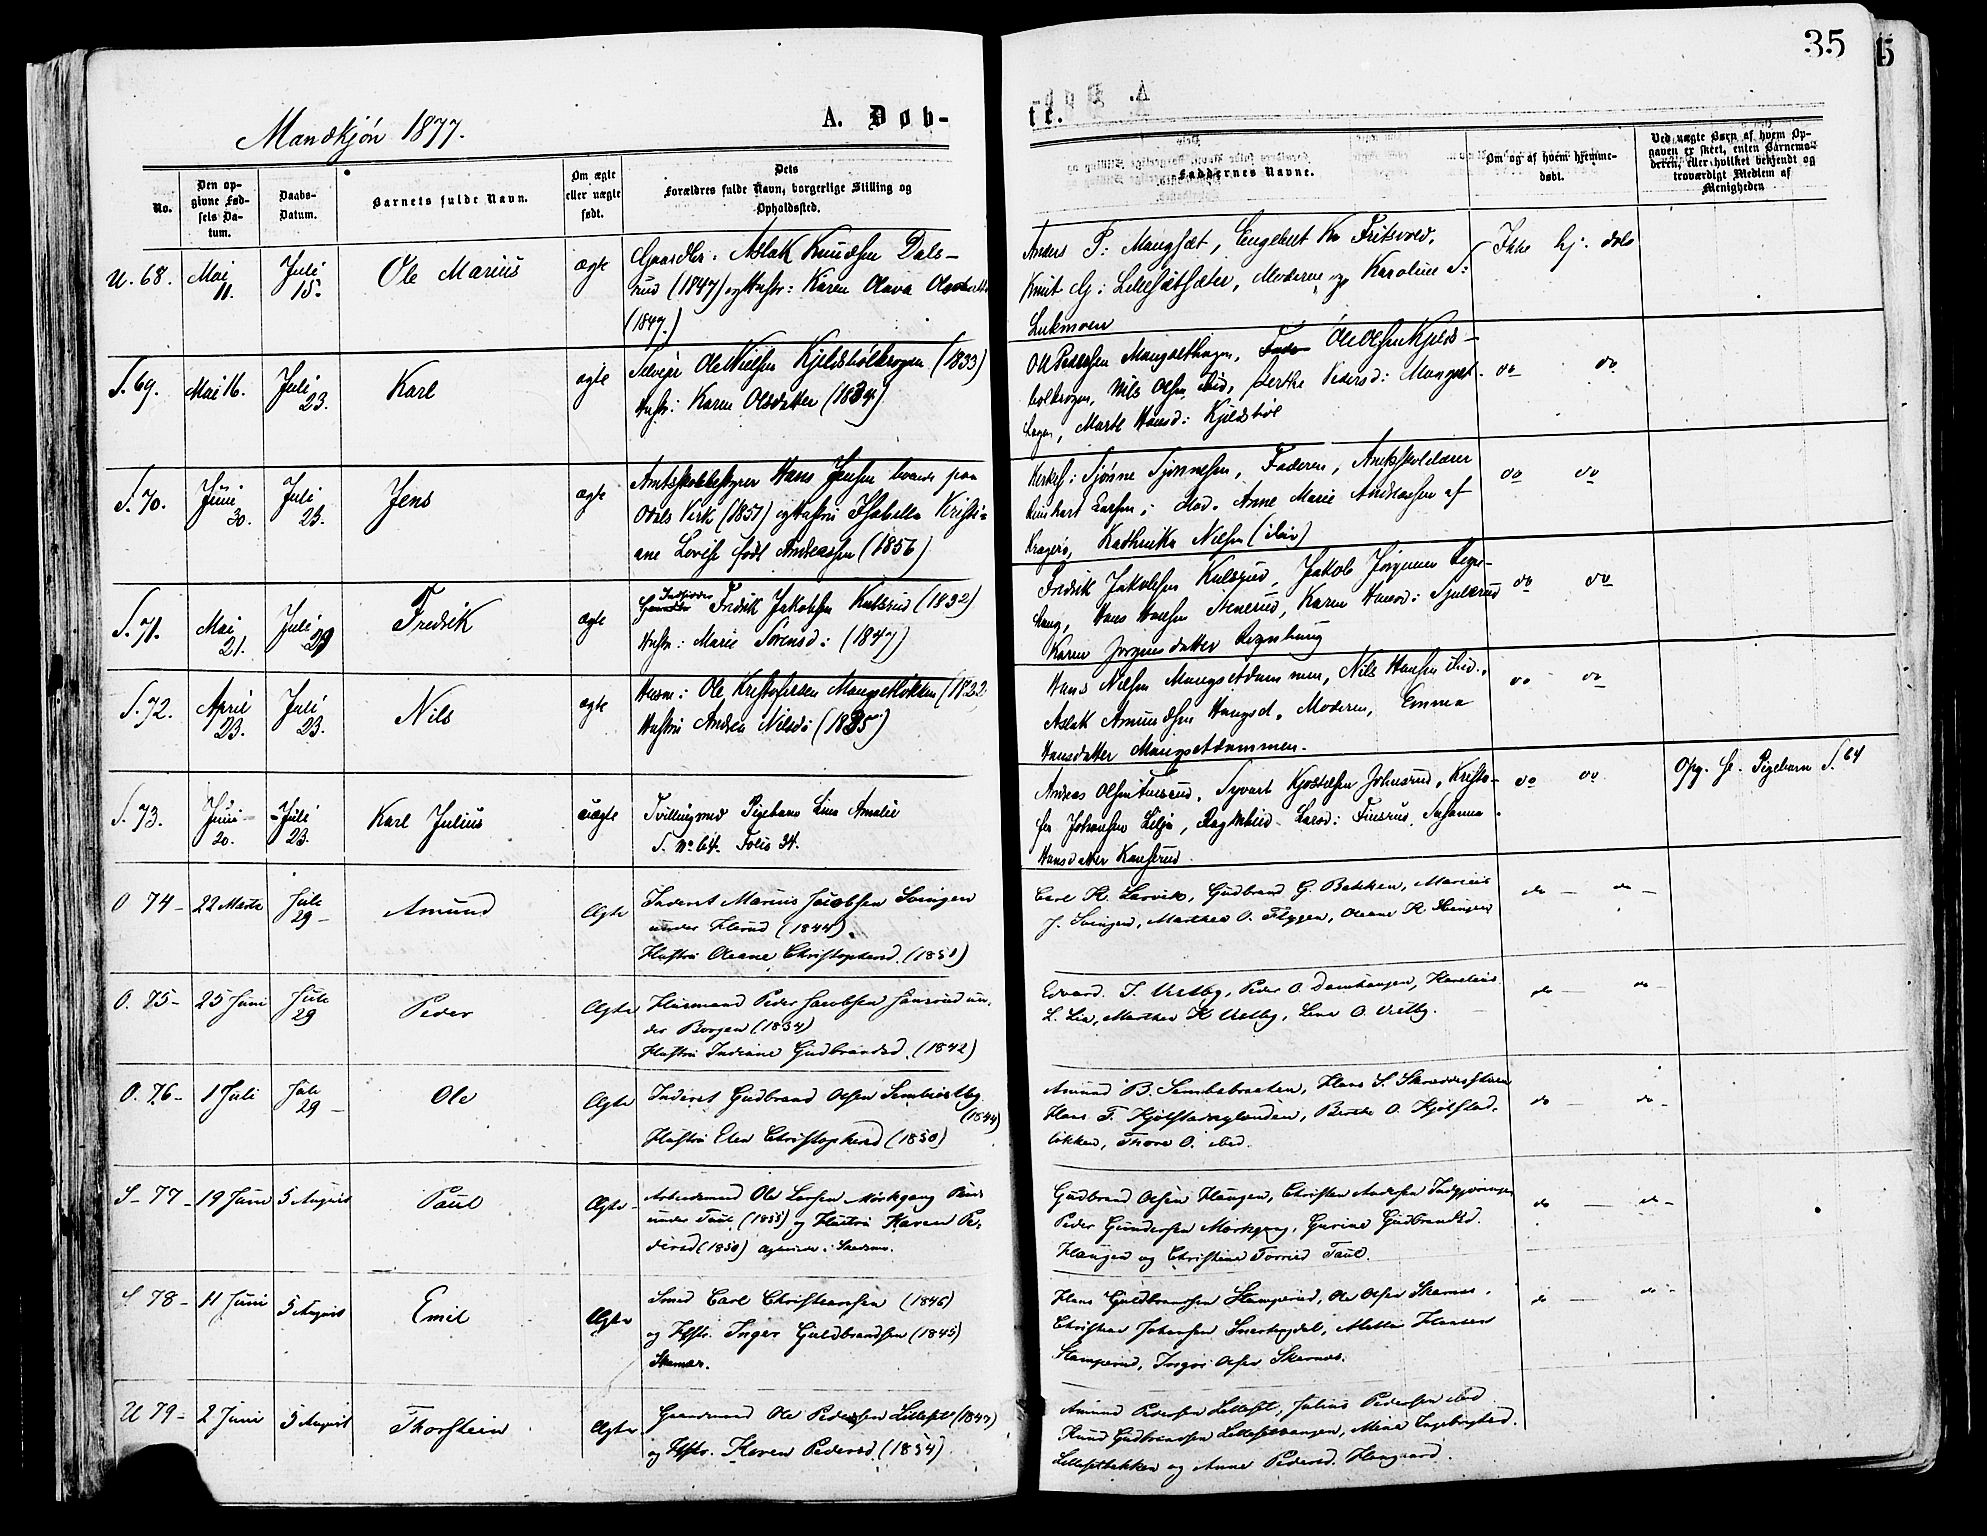 35
Mandkjøn 1877.
A. Døb-
te.
No.
Den op-
givne Fød-
sels Da-
tum.
Daabs-
Datum.
Barnets fulde Navn.
Om ægte
eller uægte
født.
Dets
Forældres fulde Navn, borgerlige Stilling og
Opholdssted.
Faddernes Navne.
Om og af hvem hjemme-
døbt.
Ved uægte Børn af hvem Op-
gaven er skeet, enten Barnemo-
deren, eller hvilket bekjendt og
troværdigt Medlem af
Menigheden
U. 68.
Mai
11.
Juli
15.
Ole Marius
ægte
Gaardbr: Aslak Knudsen Dals-
rud (1847) og Hustr: Karen Olava
(1847.)
Anders P: Mangset, Engebret Kr Fritsvold,
Knut G: Lillesætsæter, Moderen og Karoline
Ikke hj. døbt
S. 69.
Mai 16.
Juli
23.
Karl
ægte
Selveier Ole Nielsen Kjeldsbølkrogen (1833)
Hustr: Karen Olsdatter (1834)
Ole Pedersen Mangsethagen, Ole Olsen Kjelds-
bølkrogen, Nils Olsen ibid, Berthe Pedersd: Mangset-
hagen, Marte Hansd: Kjeldsbøl
do do
S. 70.
Juni
30.
Juli
23.
Jens
ægte
Amtsskolebestyrer Hans Jensen boende paa
Odals Verk (1851) og Hustru Isabella Kristi-
ane Lovise født Andreassen (1856)
Kirkes: Sjønne Sjønnesen, Faderen, Amtsskolelærer
Reinhart Larsen, Anne Marie Andreassen af
Kragerø, Kathinka Nilsen (ibid)
do do
S. 71.
Mai
21.
Juli
29
Fredrik
ægte
Fredrik Jakobsen Kulsrud (1832)
Hustr: Marie Sørensd: (1847)
Fredrik Jakobsen Kulsrud, Jakob Jørgensen Regns-
haug, Hans Hansen Stenerud, Karen Hansd: Sjulsrud
Karen Jørgensdatter Regnshaug
do do
S. 72.
April
23.
Juli
23.
Nils
ægte
Husm: Ole Kristofersen Mangsetløkken (1822
Hustru Andrea Nilsd: (1835)
Hans Nilsen Mangsetdammen, Nils Hansen ibid.,
Aslak Amundsen Haugsd, Moderen, Emma
Hansdatter Mangsetdammen.
do do
S. 73.
Juni
20.
Juli
23.
Karl Julius
uægte
Tvilling med Pigebarn Lina Amalie
S. No 64. Folio 34.
Andreas Olsen Fuusrud, Syvert Kjostelsen Johnsrud, Kristo-
fer Johansen Lilja, Ragnhild Larsd: Fuusrud, Susanna
Hansdatter Kanserud.
do do
Opg. se Pigebarn S. 64
O 74-
22 Marts
Juli
29-
Amund
Ægte
Inderst Marius Jacobsen Svingen
under Herud (1844)
Hustru Oleane Christophersd. (1851)
Carl K. Larvik, Gudbrand G. Bakken, Marius
J. Svingen, Marthea O. Flygen, Oleane K.
do - do -
O. 75-
25 Juni
Juli
29
Peder
Ægte
Husmand Peder Jacobsen Jonsrud un-
der Borgen (1834)
Hustru Indiane Gudbrandsd. (1842)
Edvard S. Vestby, Peder O. Damhaugen, Karelius
L. Lia, Marthea K Vestby, Lina O. Vestby.
do - do -
O. 76-
1 Juli
Juli
29-
Ole
Ægte
Inderst Gudbrand Olsen
(1844)
Hustru Elen Christophersd (1850)
Amund B. Sembsbraaten, Hans S.
Hans F. Kjølstadeglunden, Berthe O. Kjølstad-
løkken, Thore O. ibid.
do - do -
S- 77-
19 Juni
5 August
Paul
Ægte
Arbeidsmand Ole Larsen Mørkgang
under Taut (1855) og Hustru Karen Pe-
dersd (1850)
Gudbrand Olsen Haugen, Christen Andersen
Peder Gundersen Mørkgang, Gurine Gudbrandsd.
Haugen og Christine Torersd Taut.
do - do -
S 78-
11 Juni
5 August
Emil
Ægte
Smed Carl Christiansen (1846)
og Hstr. Inger Guldbrandsen (1845)
Skarnæs.
Hans Guldbrandsen Slamperud, Ole Olsen Skarnæs,
Christian Johansen, Mathea Hansen
Slamperud, Inger Olsen Skarnæs.
do - do -
U 79-
2 Juni
5 August
Thorstein
Ægte
Gaardmand Ole Pedersen Lilleset (1847)
og Hstr. Karen Pedersd. (1854)
Amund Pedersen Lilleset, Julius Pedersen ibid
Knud Gudbrandsen Lillesetvangen, Mina Ingebrigtsd.
Lillesetbakken og Anne Pedersd. Haugaard.